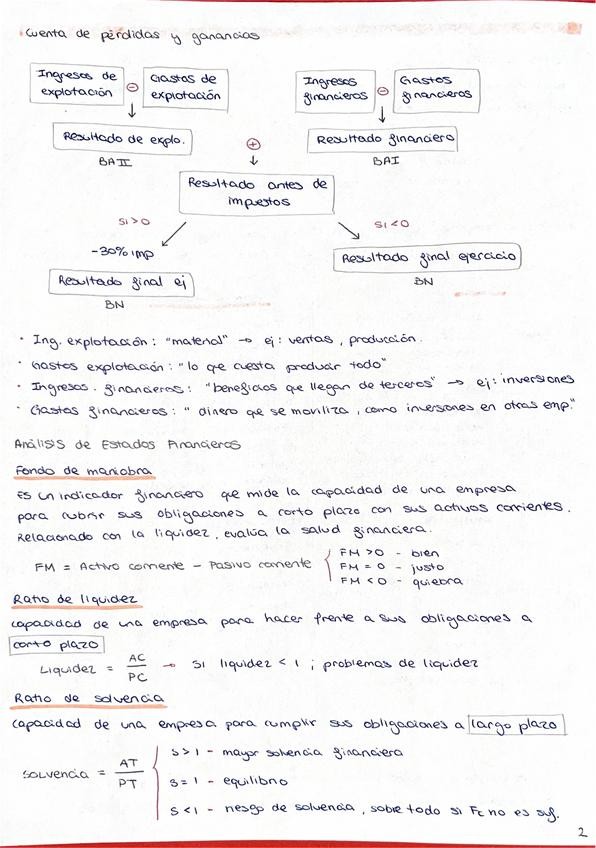 Cuenta de pérdidas y ganancias
Ingresos de explotación ⊖ Gastos de explotación
Ingresos financieros ⊖ Gastos financieros
Resultado de explo.
BAII
⊕
Resultado financiero
BAI
Resultado antes de impuestos
SI > 0
SI < 0
-30% imp
Resultado final ej
BN
Resultado final ejercicio
BN
• Ing. explotación: "material" → ej: ventas, producción.
• Gastos explotación: "lo que cuesta producir todo"
• Ingresos. financieros: "beneficios que llegan de terceros" → ej: inversiones
• Gastos financieros: "dinero que se moviliza, como inversiones en otras emp."
Análisis de Estados Financieros
Fondo de maniobra
Es un indicador financiero que mide la capacidad de una empresa
para cubrir sus obligaciones a corto plazo con sus activos corrientes.
Relacionado con la liquidez, evalúa la salud financiera.
FM = Activo corriente - Pasivo corriente
FM > 0 - bien
FM = 0 - justo
FM < 0 - quiebra
Ratio de liquidez
capacidad de una empresa para hacer frente a sus obligaciones a
corto plazo
Liquidez = AC / PC → si liquidez < 1 ; problemas de liquidez
Ratio de solvencia
capacidad de una empresa para cumplir sus obligaciones a largo plazo
Solvencia = AT / PT
S > 1 - mayor solvencia financiera
S = 1 - equilibrio
S < 1 - riesgo de solvencia, sobre todo si Fc no es suf.
2